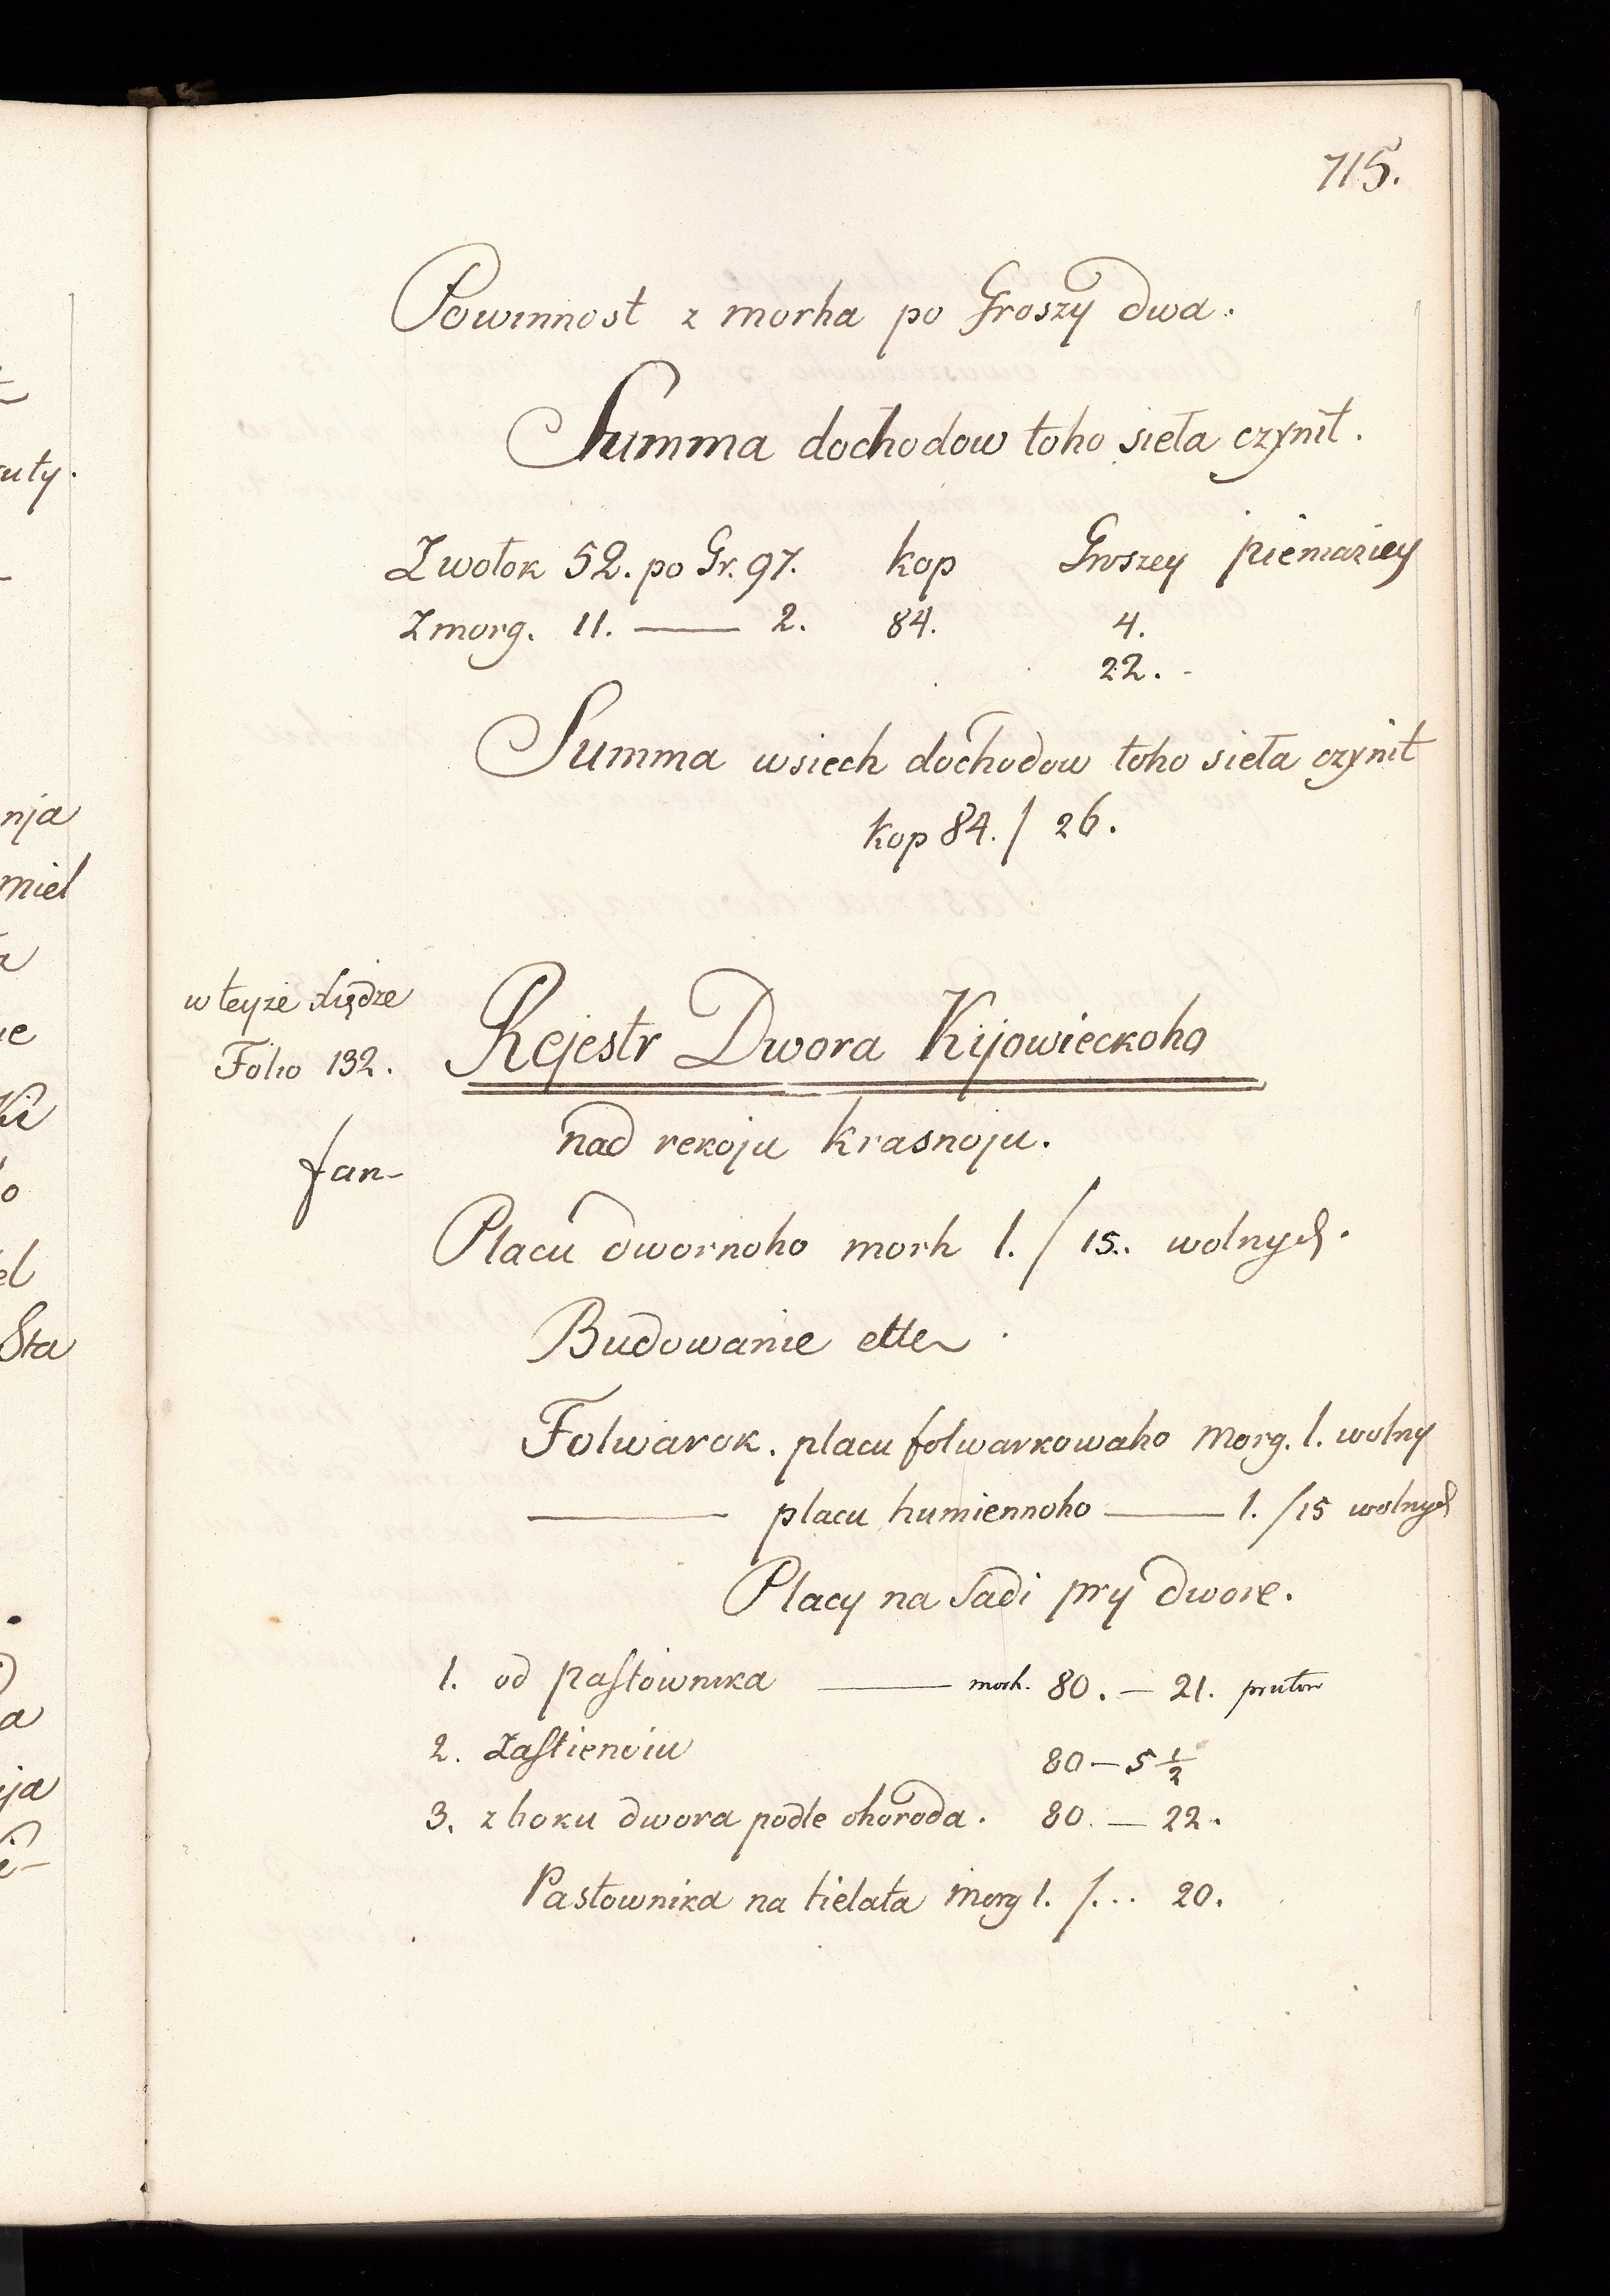 715.
Powinnost z morha po Groszy dwa.
Summa dochodow toho sieła czynit.
Z wołok 52. po Gr. 97. kop Groszey pieniaziey
Z morg. 11. —— 2. 84. 4.
22. -
Summa wsiech dochodow toho sieła czynit
kop 84. / 26.
w teyże xiędze
Folio 132.
Rejestr Dwora Kijowieckoho
nad rekoju krasnoju.
fan-
Placu dwornoho morh 1. / 15. wolnych.
Budowanie etc
Folwarok. placu folwarkowaho Morg. 1. wolny
—— placu humiennoho —— 1. / 15 wolnych
Placy na sadi pry dwore.
1. od pastownika —— morh. 80. — 21. prutow
2. Zastieniu 80 — 5 ½
3. z boku dwora podle ohoroda. 80. — 22.
Pastownika na tielata morg 1. /... 20.
uty.
nja
miel
ie
Ki
o
el
Sta
a
ja